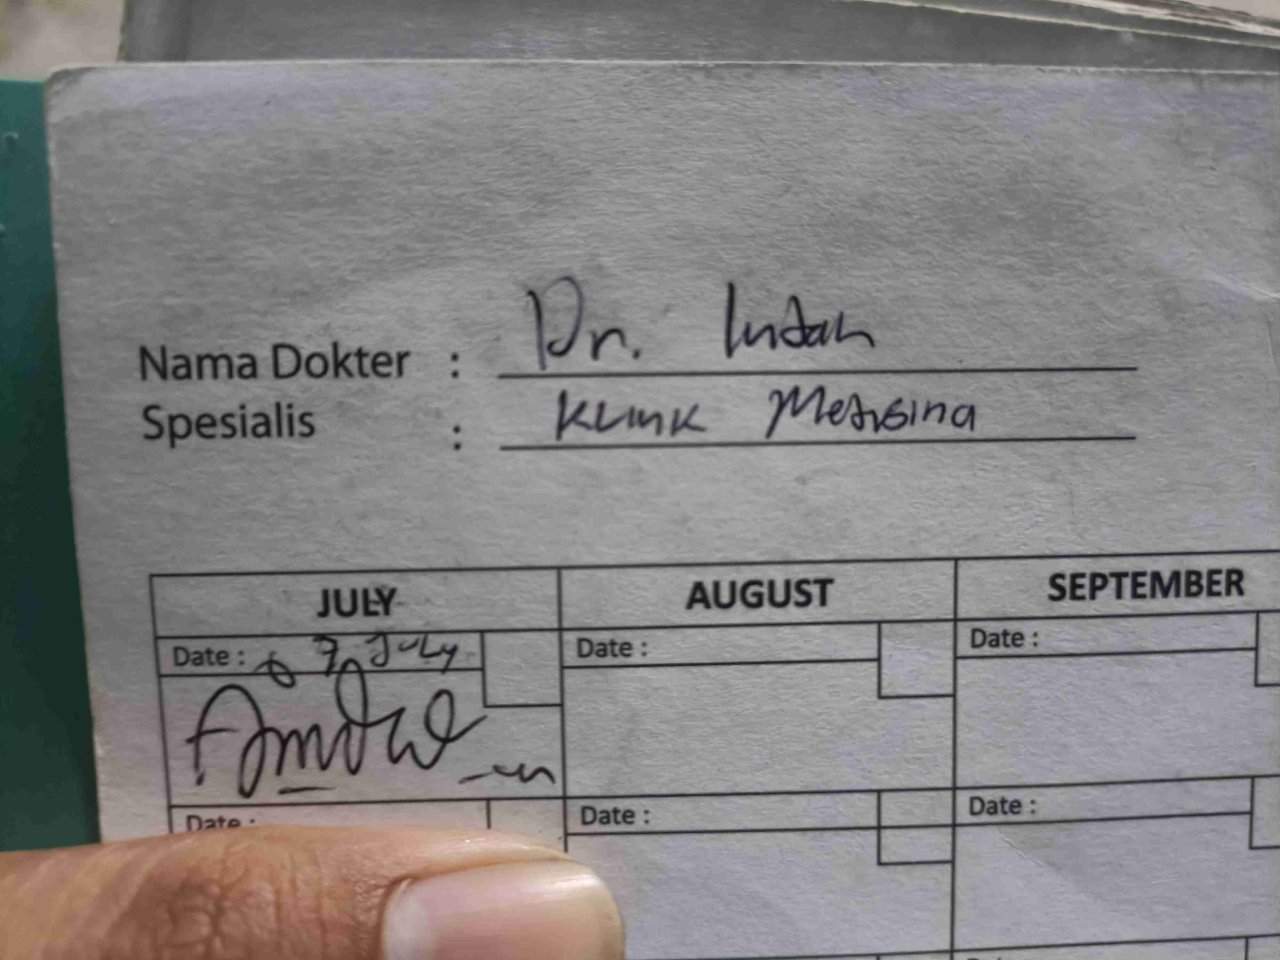 Nama Dokter : Dr. Indah
Spesialis : Klinik Metrsina
JULY AUGUST SEPTEMBER
Date : 7 July Date : Date :
Date : Date : Date :